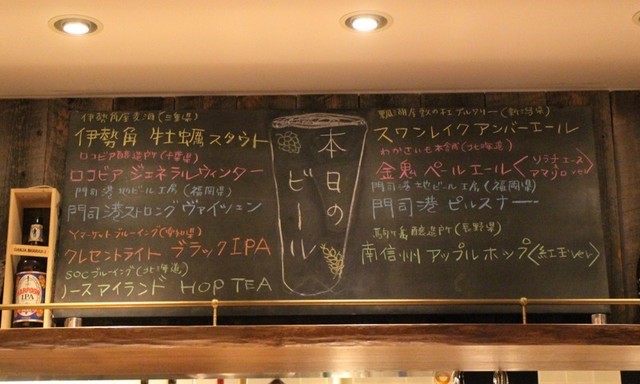 伊勢角屋麦酒(三重県)
伊勢角 牡蠣スタウト
ロコビア醸造所(千葉県)
ロコビア ジェネラルウィンター
門司港地ビール工房(福岡県)
門司港ストロングヴァイツェン
Yマーケットブルーイング(愛知県)
クレセントライト ブラックIPA
SOCブルーイング(北海道)
ノースアイランド HOP TEA
本日の
ビール
瓢湖屋敷の杜ブルワリー(新潟県)
スワンレイクアンバーエール
わかさいも本舗(北海道)
金鬼 ペールエール
ソラチエース
アマリロ
門司港地ビール工房(福岡県)
門司港 ピルスナー
駒ヶ岳醸造所(長野県)
南信州 アップルホップ〈紅玉ver〉
IPA